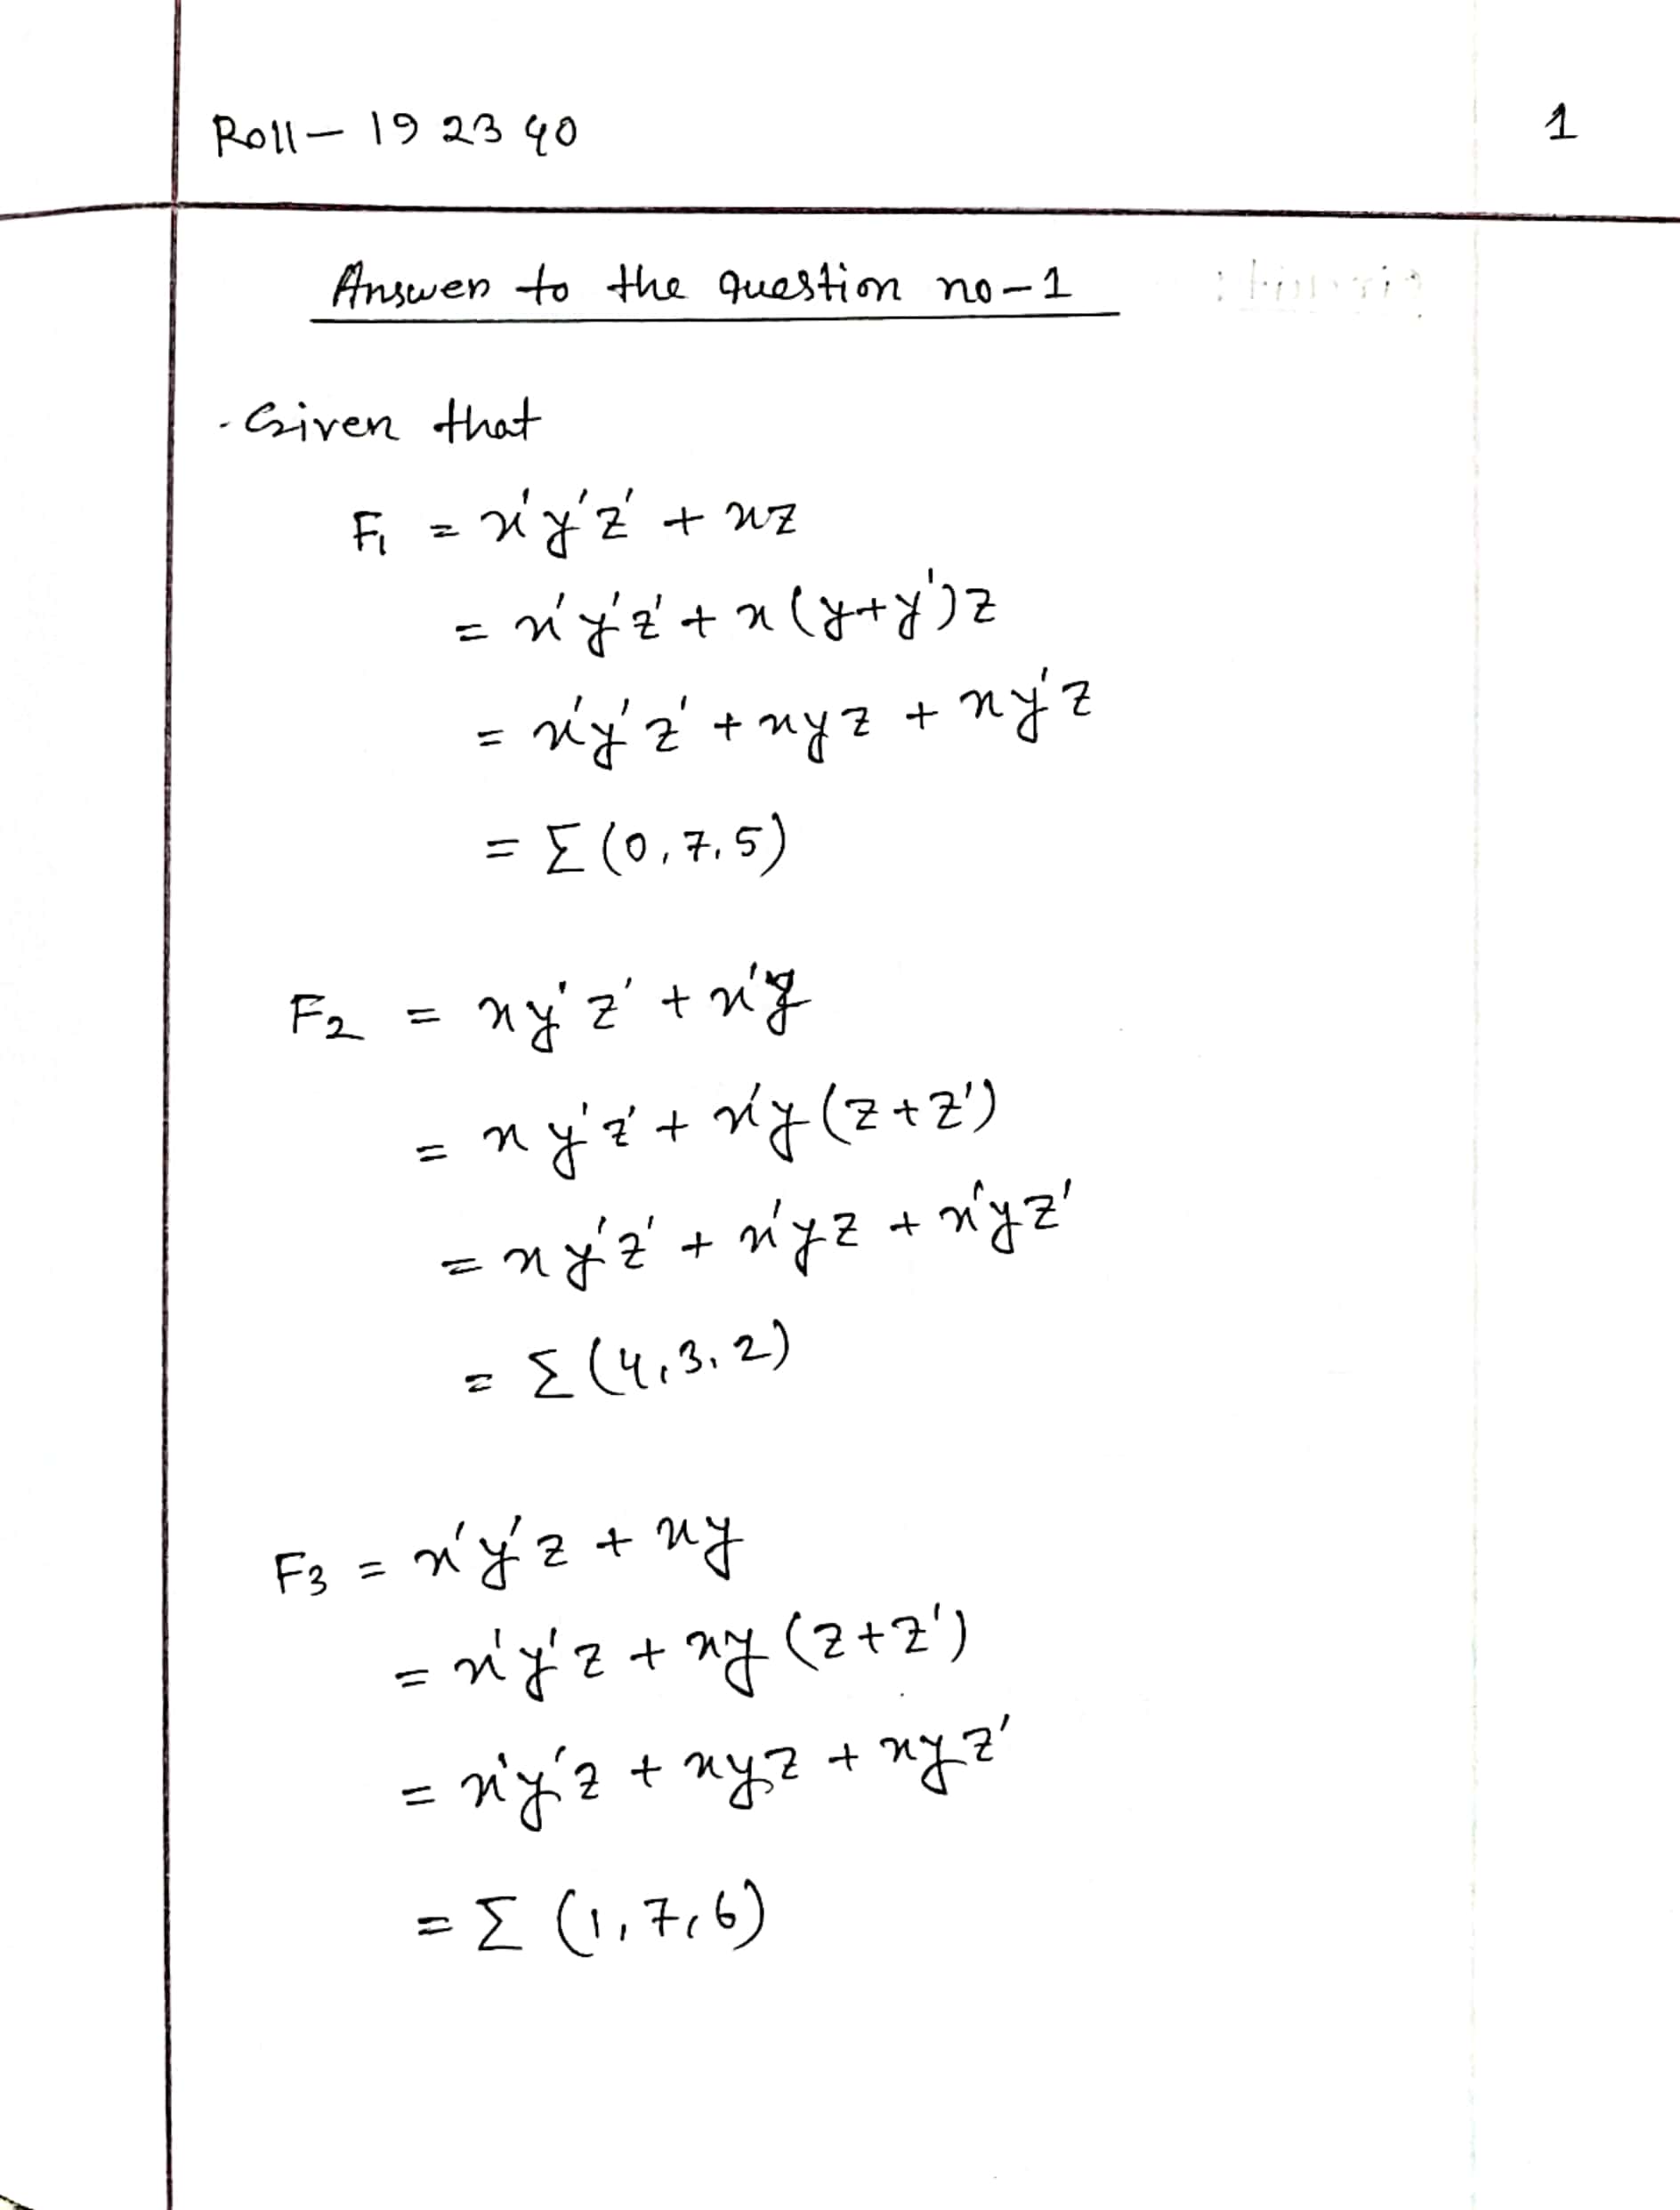 Roll- 192340
1
Answer to the question no-1
Given that
F₁ = x'y'z' + xz
= x'y'z' + x(y+y')z
= x'y'z' + xyz + xy'z
= Σ(0,7,5)
F2 = xy'z' + x'y
= xy'z' + x'y(z+z')
= xy'z' + x'yz + x'yz'
= Σ(4,3,2)
F3 = x'y'z + xy
= x'y'z + xy(z+z')
= x'y'z + xyz + xyz'
= Σ (1,7,6)